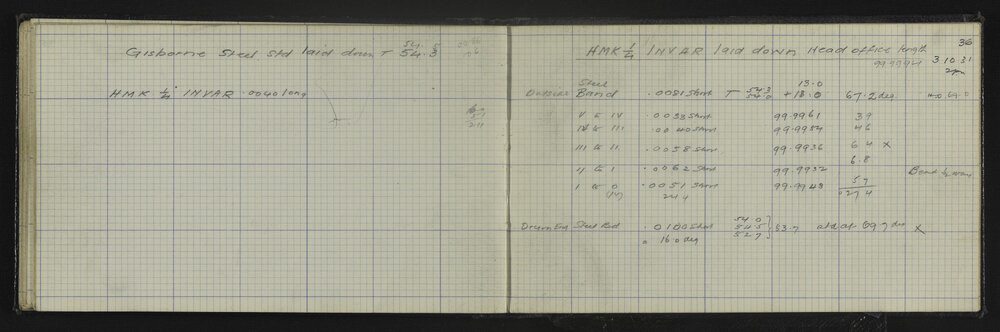 Gisborne Steel Std laid down T 54.5
54.3
HMK 1/4 INVAR .0040 long
36
HMK 1/4 INVAR laid down Head office length
99.9994
3 10 31
2pm
Outside Steel Band .0081 Short T 54.3 13.0
54.0 +13.0 67.2 deg
V to IV .0033 Short 99.9961 39
IV to III .0040 Short 99.9954 46
III to II .0058 Short 99.9936 64 x
6.8
II to I .0062 Short 99.9932
I to 0 .0051 Short 99.9948 57
244 274
Drawing Steel Bd .0100 Short 54.0
54.5 53.7 std at 69.7 deg x
52.7
16.0 deg